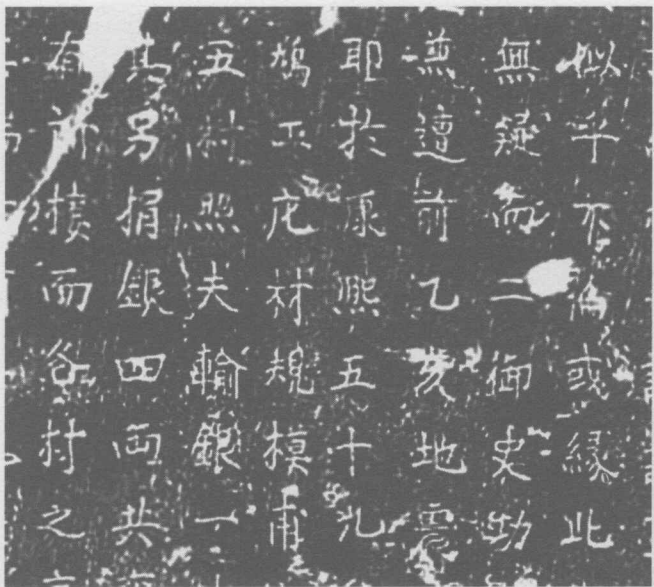 似乎不為或緣此
無疑而二御史功
無遭前乙亥地震
耶於康熙五十九
鳩工庀材規模甫
五村照夫輸銀一
其另捐銀四両共
有所積而各村之